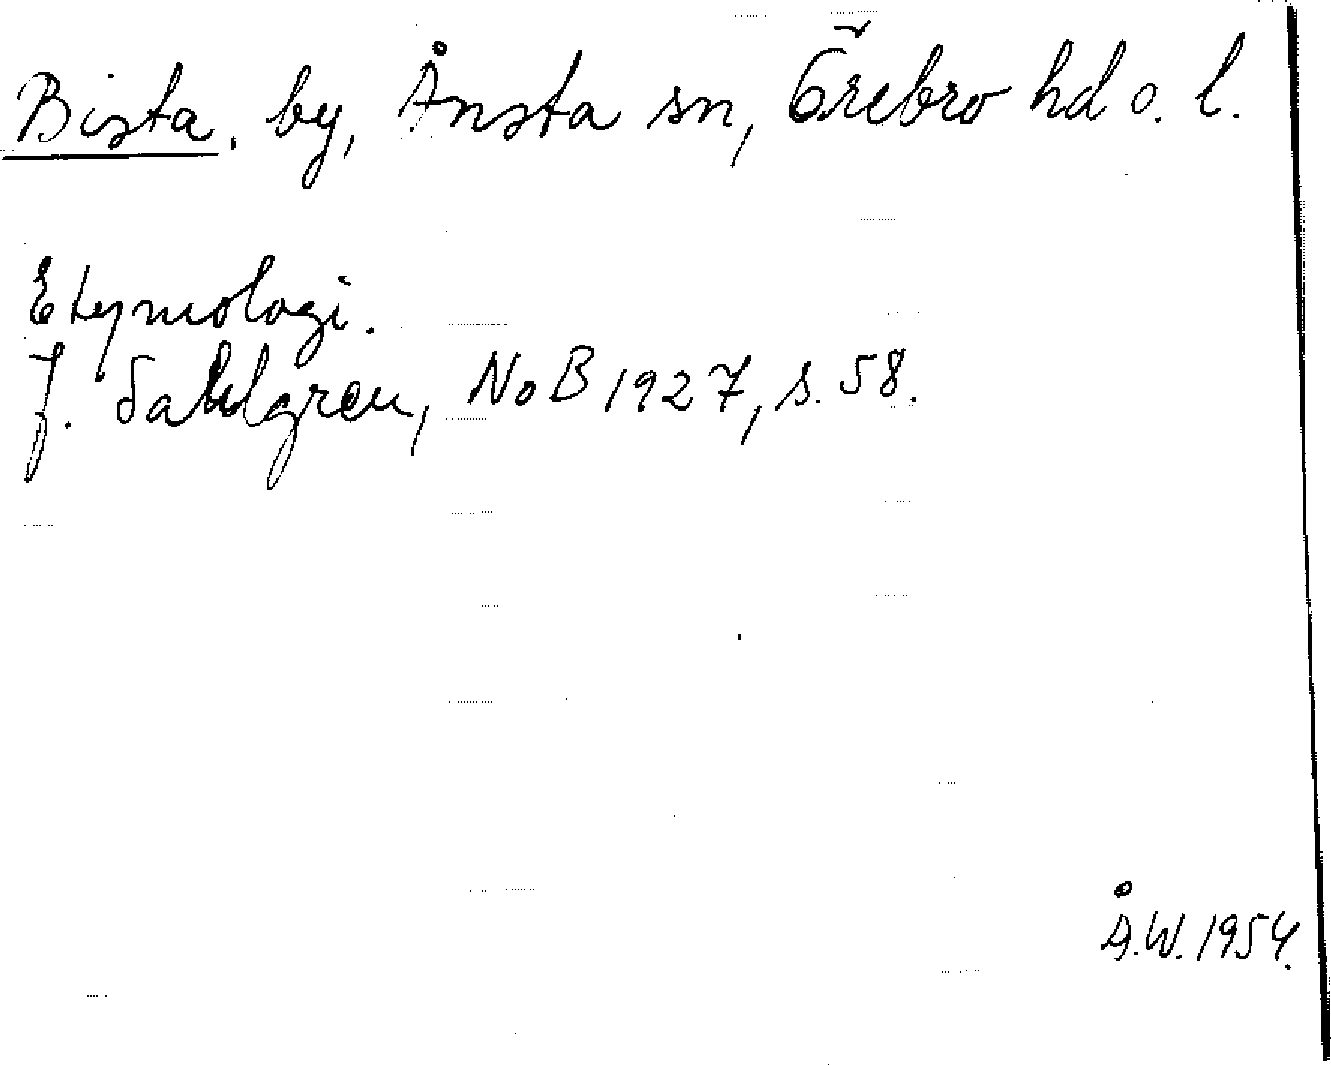 Bista, by, Ånsta sn, Örebro hd o. l.
Etymologi.
J. Sahlgren, NoB 1927, s. 58.
Å.W. 1954.